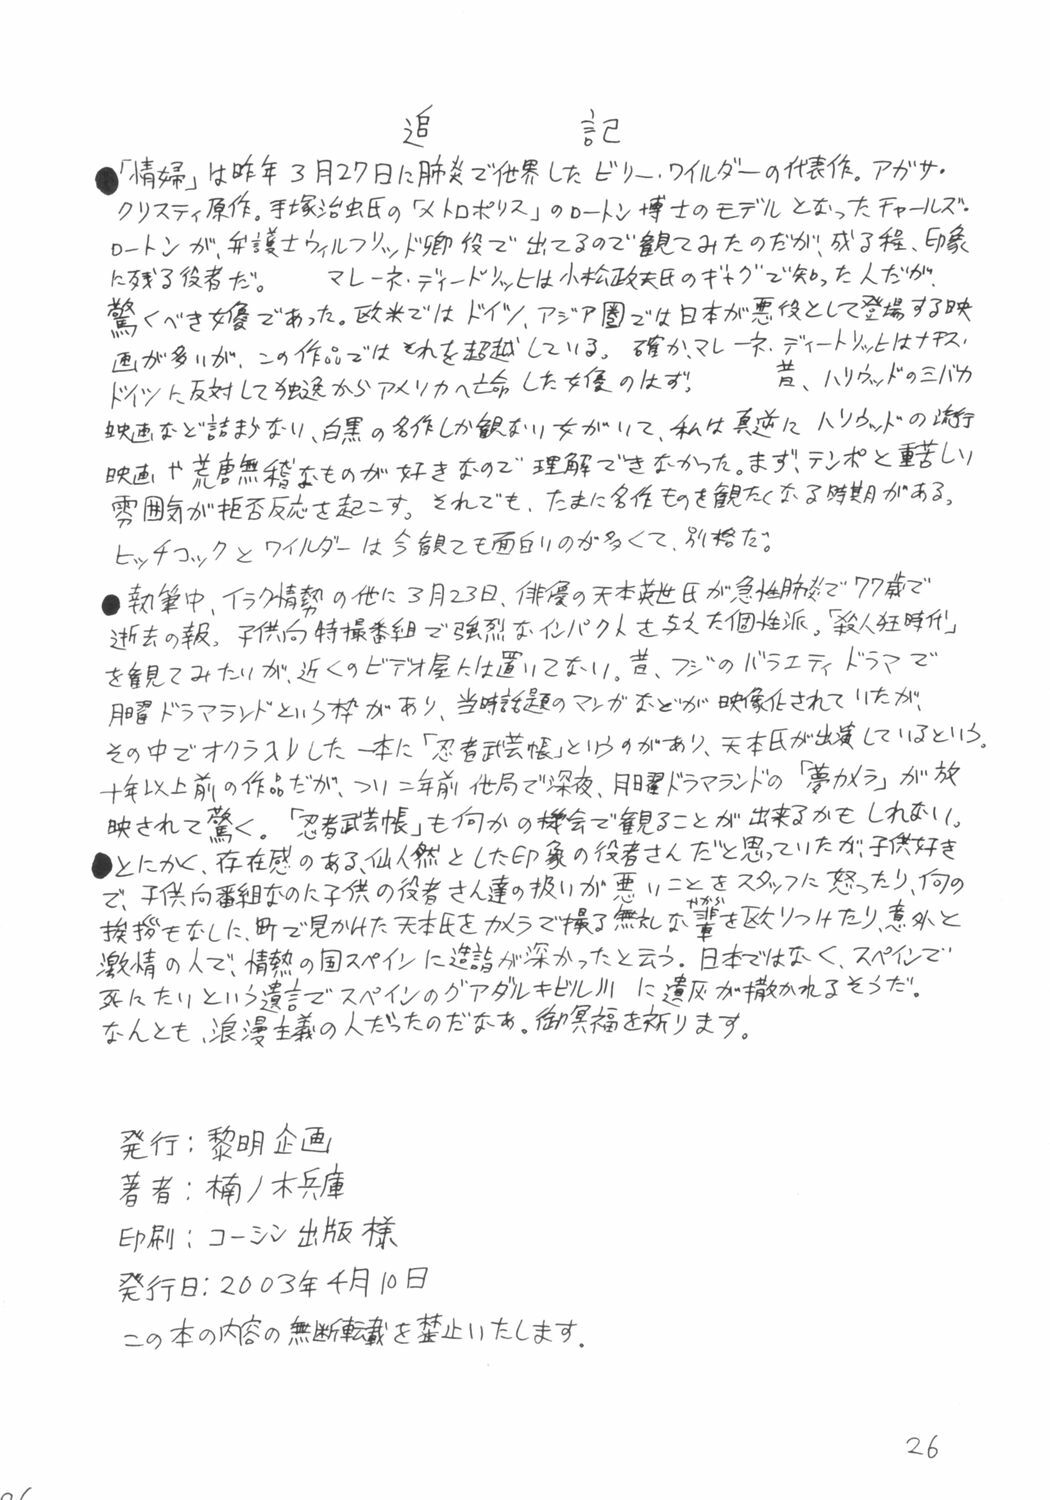 追記
●「情婦」は昨年3月27日に肺炎で他界したビリー・ワイルダーの代表作。アガサ・
クリスティ原作。手塚治虫氏の「メトロポリス」のロートン博士のモデルとなったチャールズ・
ロートンが、弁護士ウィルフリッド卿役で出てるので観てみたのだが、成る程、印象
に残る役者だ。 マレーネ・ディードリッヒは小松政夫氏のギャグで知った人だが、
驚くべき女優であった。欧米ではドイツ、アジア圏では日本が悪役として登場する映
画が多いが、この作品ではそれを超越している。確か、マレーネ・ディートリッヒはナチス・
ドイツに反対して独逸からアメリカへ亡命した女優のはず。 昔、ハリウッドのミバカ
映画など詰まらない、白黒の名作しか観ない女がいて、私は真逆にハリウッドの流行
映画や荒唐無稽なものが好きなので理解できなかった。まず、テンポと重苦しい
雰囲気が拒否反応を起こす。それでも、たまに名作ものを観たくなる時期がある。
ヒッチコックとワイルダーは今観ても面白いのが多くて、別格だ。
●執筆中、イラク情勢の他に3月23日、俳優の天本英世氏が急性肺炎で77歳で
逝去の報。子供向特撮番組で強烈なインパクトを与えた個性派。「殺人狂時代」
を観てみたいが、近くのビデオ屋には置いてない。昔、フジのバラエティドラマで
月曜ドラマランドという枠があり、当時話題のマンガなどが映像化されていたが、
その中でオクラ入りした一本に「忍者武芸帳」というのがあり、天本氏が出演しているという。
十年以上前の作品だが、つい二年前他局で深夜、月曜ドラマランドの「夢カメラ」が放
映されて驚く。「忍者武芸帳」も何かの機会で観ることが出来るかもしれない。
●とにかく、存在感のある、仙人然とした印象の役者さんだと思っていたが、子供好き
で、子供向番組なのに子供の役者さん達の扱いが悪いことをスタッフに怒ったり、何の
挨拶もなしに、町で見かけた天本氏をカメラで撮る無礼な輩を殴りつけたり、意外と
激情の人で、情熱の国スペインに造詣が深かったと云う。日本ではなく、スペインで
死にたいという遺言でスペインのグアダルキビル川に遺灰が撒かれるそうだ。
なんとも、浪漫主義の人だったのだなぁ。御冥福を祈ります。
発行：黎明企画
著者：楠ノ木兵庫
印刷：コーシン出版様
発行日：2003年4月10日
この本の内容の無断転載を禁止いたします。
26